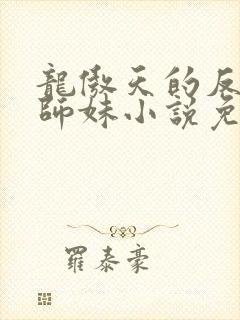 龍傲天的反
師妹小說免
羅泰豪